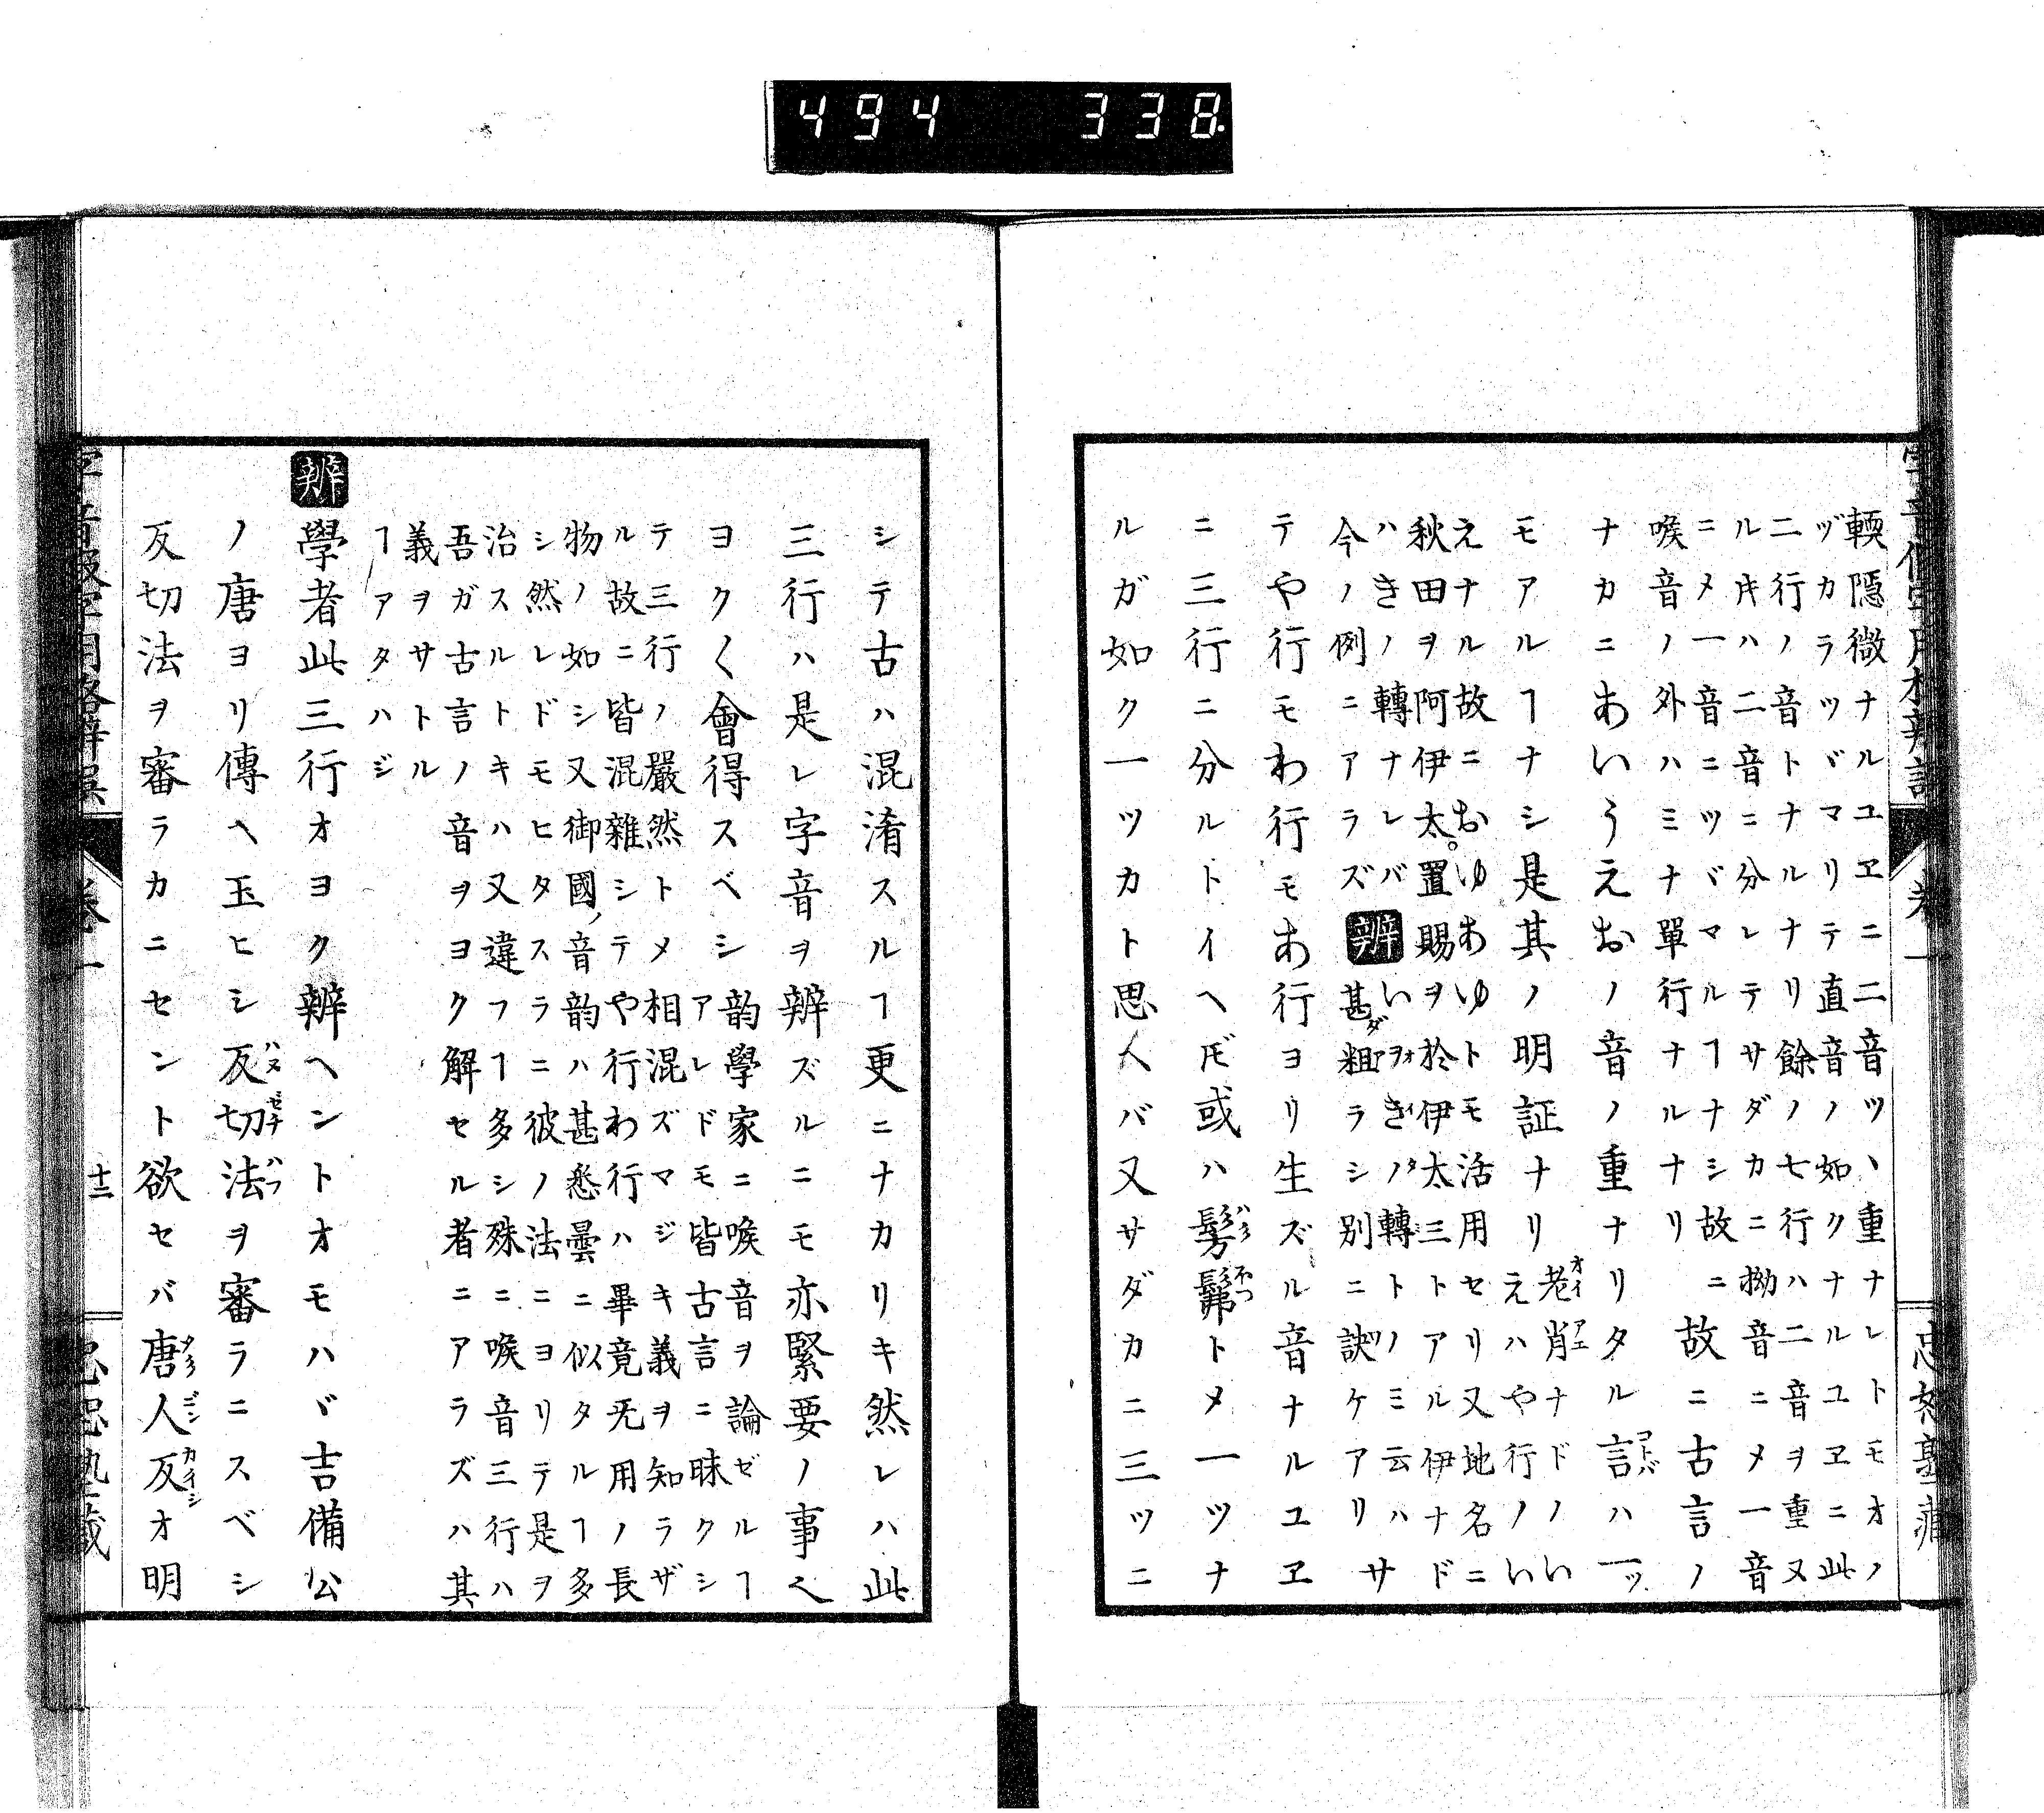 字音假字用格辨誤 卷一 忠恕塾藏
輭隠微ナルユヱニ二音ツヽ重ナレトモオノ
ヅカラツヾマリテ直音ノ如クナルユヱニ此
二行ノ音トナルナリ餘ノ七行ハ二音ヲ重ヌ
ル𪜈ハ二音ニ分レテサダカニ拗音ニメ一音
ニメ一音ニツヾマルヿナシ故ニ
喉音ノ外ハミナ單行ナルナリ
故ニ古言ノ
ナカニあいうえおノ音ノ重ナリタル言ハ一ッ
モアルヿナシ是其ノ明証ナリ
老肖ナドノい
えハや行ノい
えナル故ニおゆあゆトモ活用セリ又地名ニ
秋田ヲ阿伊太。置賜ヲ於伊太三トアル伊ナド
ハきノ轉ナレバいヲぎノ轉トノミ云ハ
今ノ例ニアラズ 辨 甚粗ラシ別ニ訣ケアリ
サ
テや行モわ行モあ行ヨリ生ズル音ナルユヱ
ニ三行ニ分ルトイヘ𪜈或ハ髣髴トメ一ツナ
ルガ如ク一ツカト思ヘバ又サダカニ三ツニ
シテ古ハ混淆スルヿ更ニナカリキ然レハ此
三行ハ是レ字音ヲ辨ズルニモ亦緊要ノ事ヘ
ヨク〱會得スベシ
韵學家ニ喉音ヲ論ゼルヿ
アレドモ皆古言ニ昧クシ
テ三行ノ嚴然トメ相混ズマジキ義ヲ知ラザ
ル故ニ皆混雜シテや行わ行ハ畢竟无用ノ長
物ノ如シ又御國ノ音韵ハ甚悉曇ニ似タルヿ多
シ然レドモヒタスラニ彼ノ法ニヨリテ是ヲ
治スルトキハ又違フヿ多シ殊ニ喉音三行ハ
吾ガ古言ノ音ヲヨク解セル者ニアラズハ其
義ヲサトル
ヿアタハジ
辨 學者此三行オヨク辨ヘントオモハヾ吉備公
ノ唐ヨリ傳ヘ玉ヒシ反切法ヲ審ラニスベシ
反切法ヲ審ラカニセント欲セバ唐人反オ明
字音假字用格辨誤 卷一 十三 忠恕塾藏
494 338